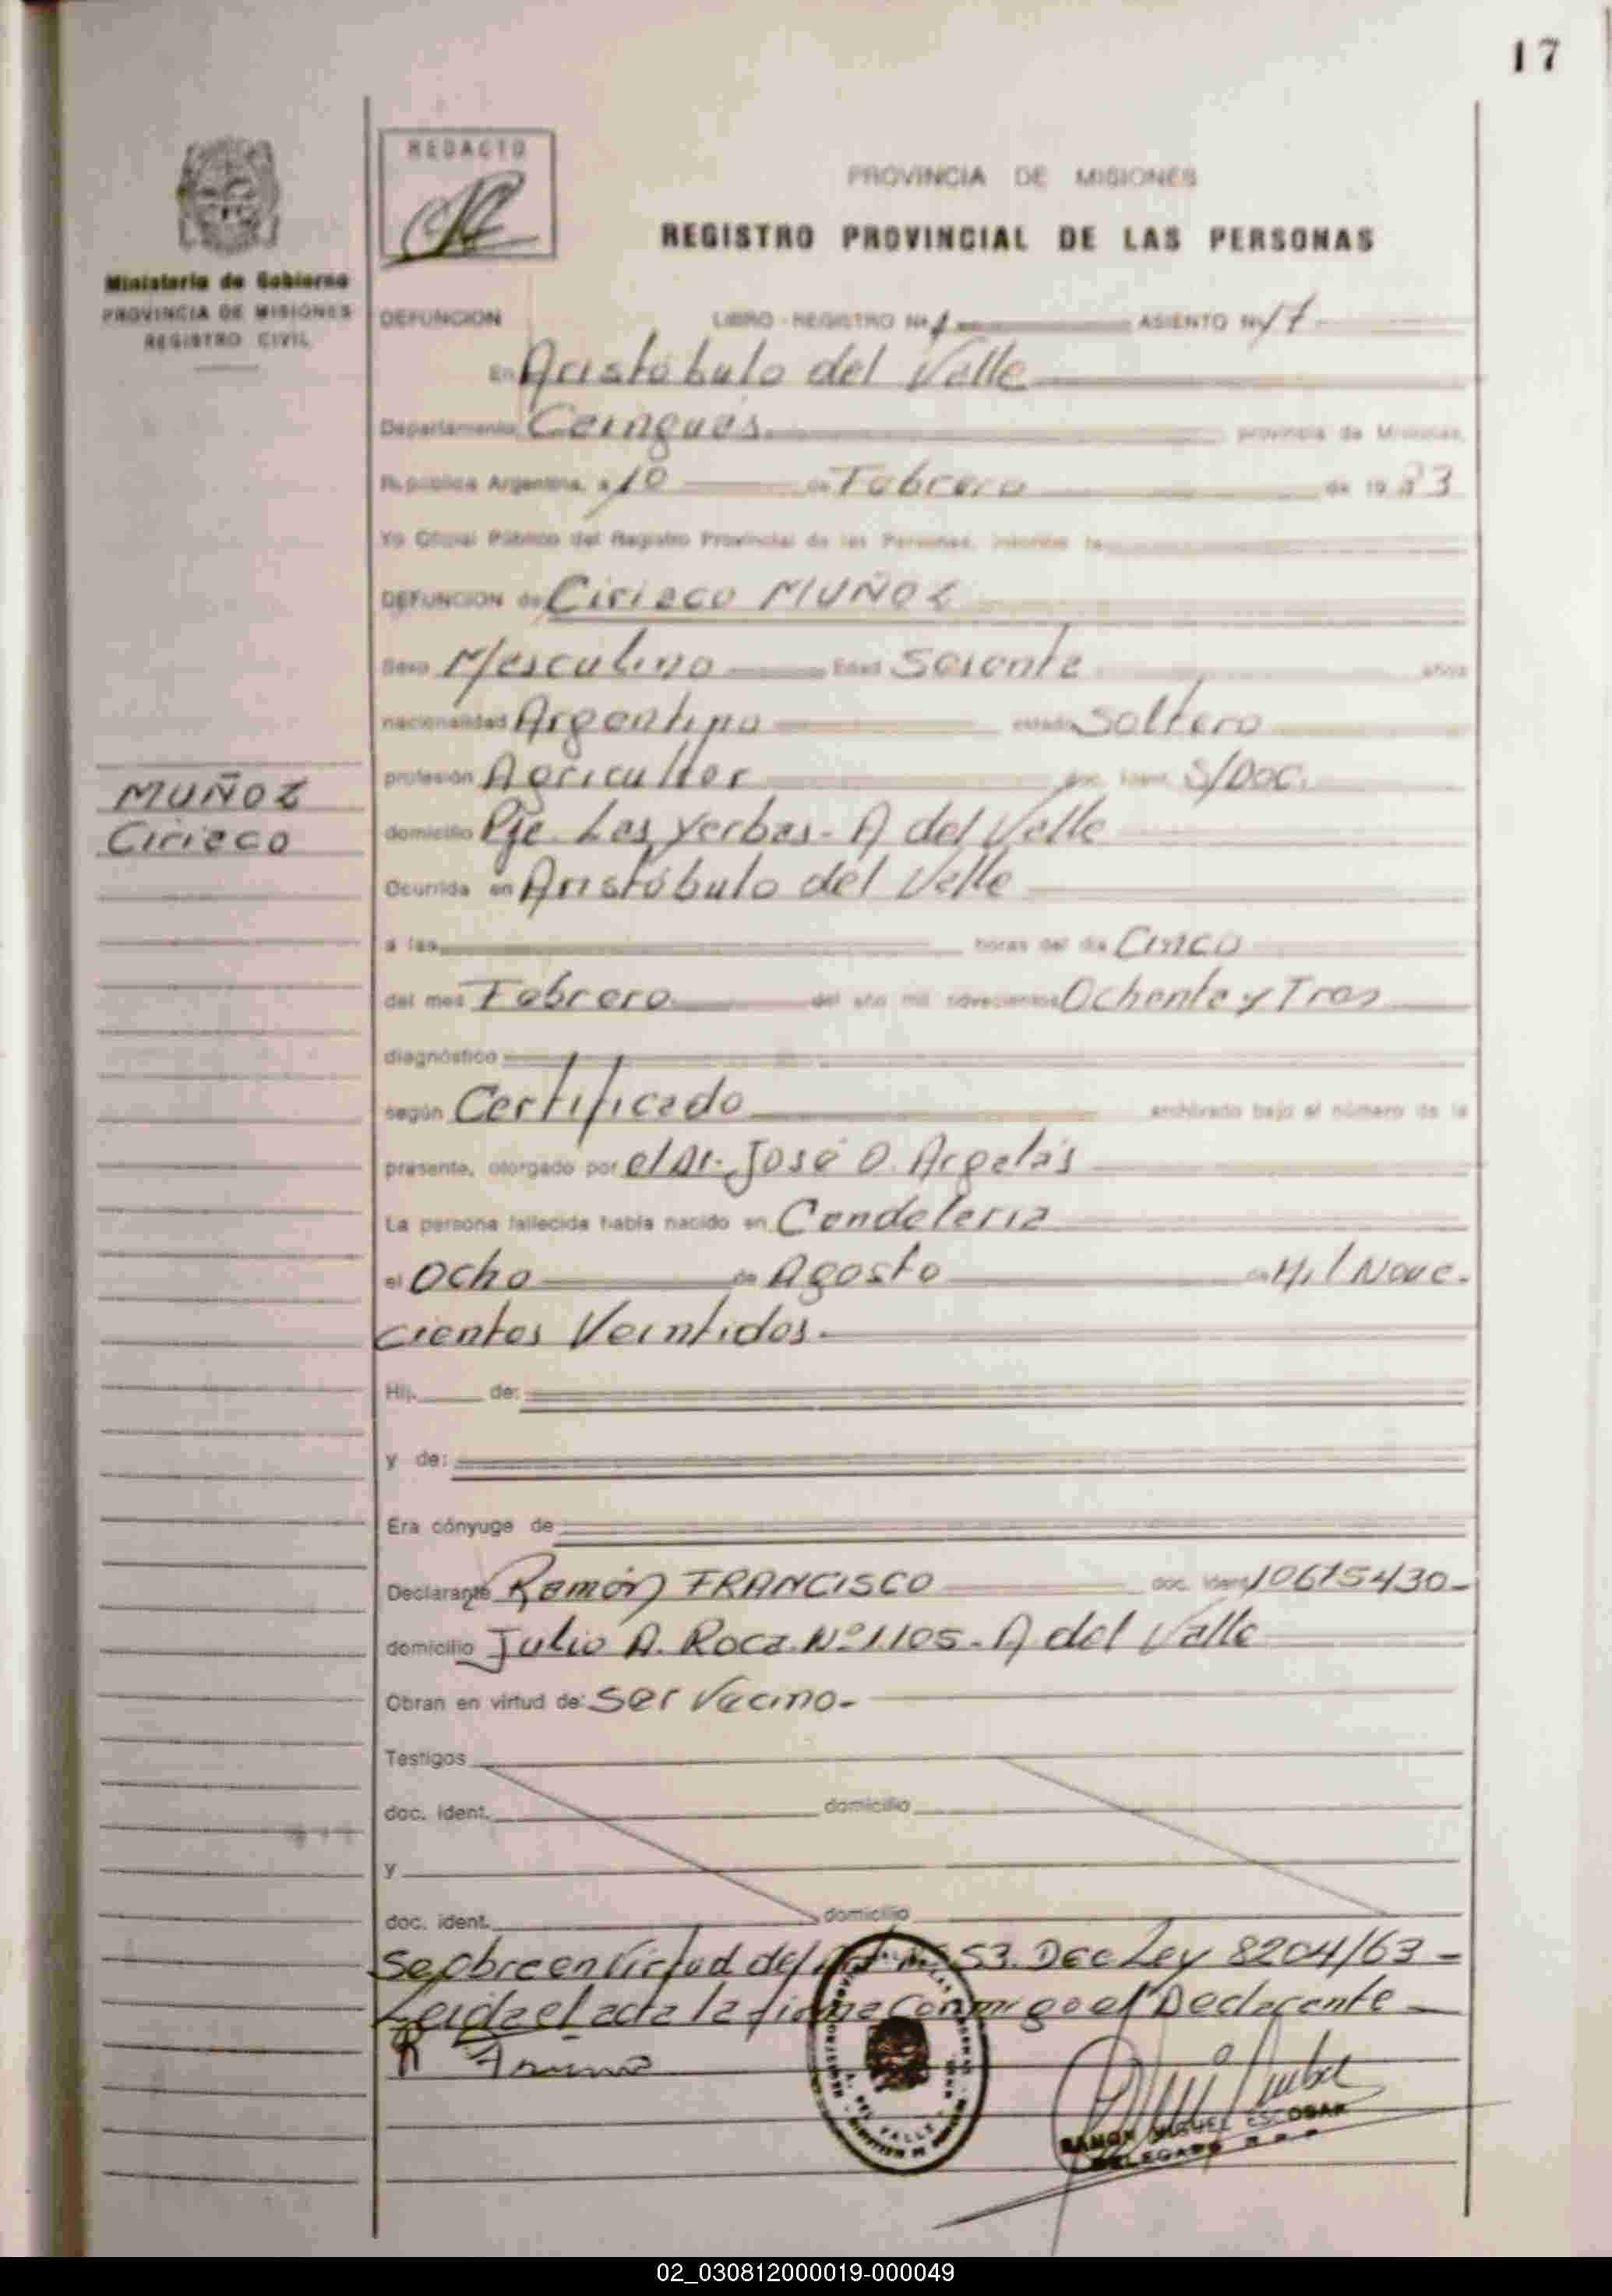 17
REDACTO
PROVINCIA DE MISIONES
REGISTRO PROVINCIAL DE LAS PERSONAS
Ministerio de Gobierno
PROVINCIA DE MISIONES
REGISTRO CIVIL
DEFUNCION LIBRO - REGISTRO Nº 1 ASIENTO Nº 17
En Aristóbulo del Valle
Departamento Cainguás provincia de Misiones,
República Argentina, a 10 de Febrero de 1983
Yo Oficial Público del Registro Provincial de las Personas, inscribo la
DEFUNCION de Ciriaco MUÑOZ
Sexo Masculino Edad Sesenta años
nacionalidad Argentino estado Soltero
profesión Agricultor doc. ident. S/Doc.
MUÑOZ
Ciriaco
domicilio Pje. Las Yerbas - A del Valle
Ocurrida en Aristóbulo del Valle
a las horas del día Cinco
del mes Febrero del año mil novecientos Ochenta y Tres
diagnóstico
según Certificado archivado bajo el número de la
presente, otorgado por el Dr. José O. Argelás
La persona fallecida había nacido en Candelaria
el Ocho de Agosto de Mil Nove.
cientos Veintidos.
Hij. de:
y de:
Era cónyuge de
Declarante Ramón FRANCISCO doc. ident.
domicilio Julio A. Roca Nº 1105 - A del Valle
Obran en virtud de: Ser Vecino -
Testigos
doc. ident. domicilio
y
doc. ident. domicilio
Se obra en Virtud del 53. Dec Ley 8204/63 -
Leida el acta la firma Conmigo el Declarante
RAMON MIGUEL ESCOBAR
DELEGADO R P P
02_030812000019-000049